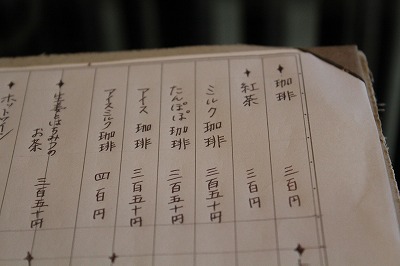 ✦珈琲 三百円
✦紅茶 三百円
ミルク珈琲 三百五十円
たんぽぽ珈琲 三百五十円
アイス珈琲 三百五十円
アイスミルク珈琲 四百円
✦生姜とはちみつのお茶 三百五十円
ホットワイン